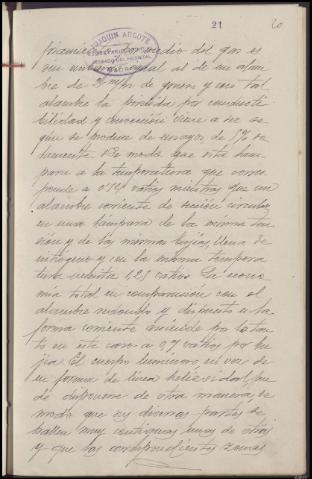 21
20
JOAQUIN ARGOTE
por medio del gas es
al de un alam
bre de 2 m/m de grueso y con tal
alambre la pérdida por conducti
bilidad y convección viene a ser se
gún se produce de ensayos, de 5% so
lamente. De modo que esta lám
para a la temperatura que corres
ponde a vatios mientras que un
alambre corriente de sección circular
en una lámpara de la misma ten
sión y de las mismas bujías llena de
nitrógeno y en la misma tempera
tura necesita 1,25 vatios. La econo
mía total en comparación con el
alambre redondo y dispuesto a la
forma corriente asciende por lo tan
to en este caso a 0,7 vatios por bu
jía. El cuerpo luminoso en vez de
en forma de línea helicoidal, pue
de disponerse de otra manera, de
modo que sus diversas partes se
hallen muy contiguas unas de otras
y que las correspondientes zonas